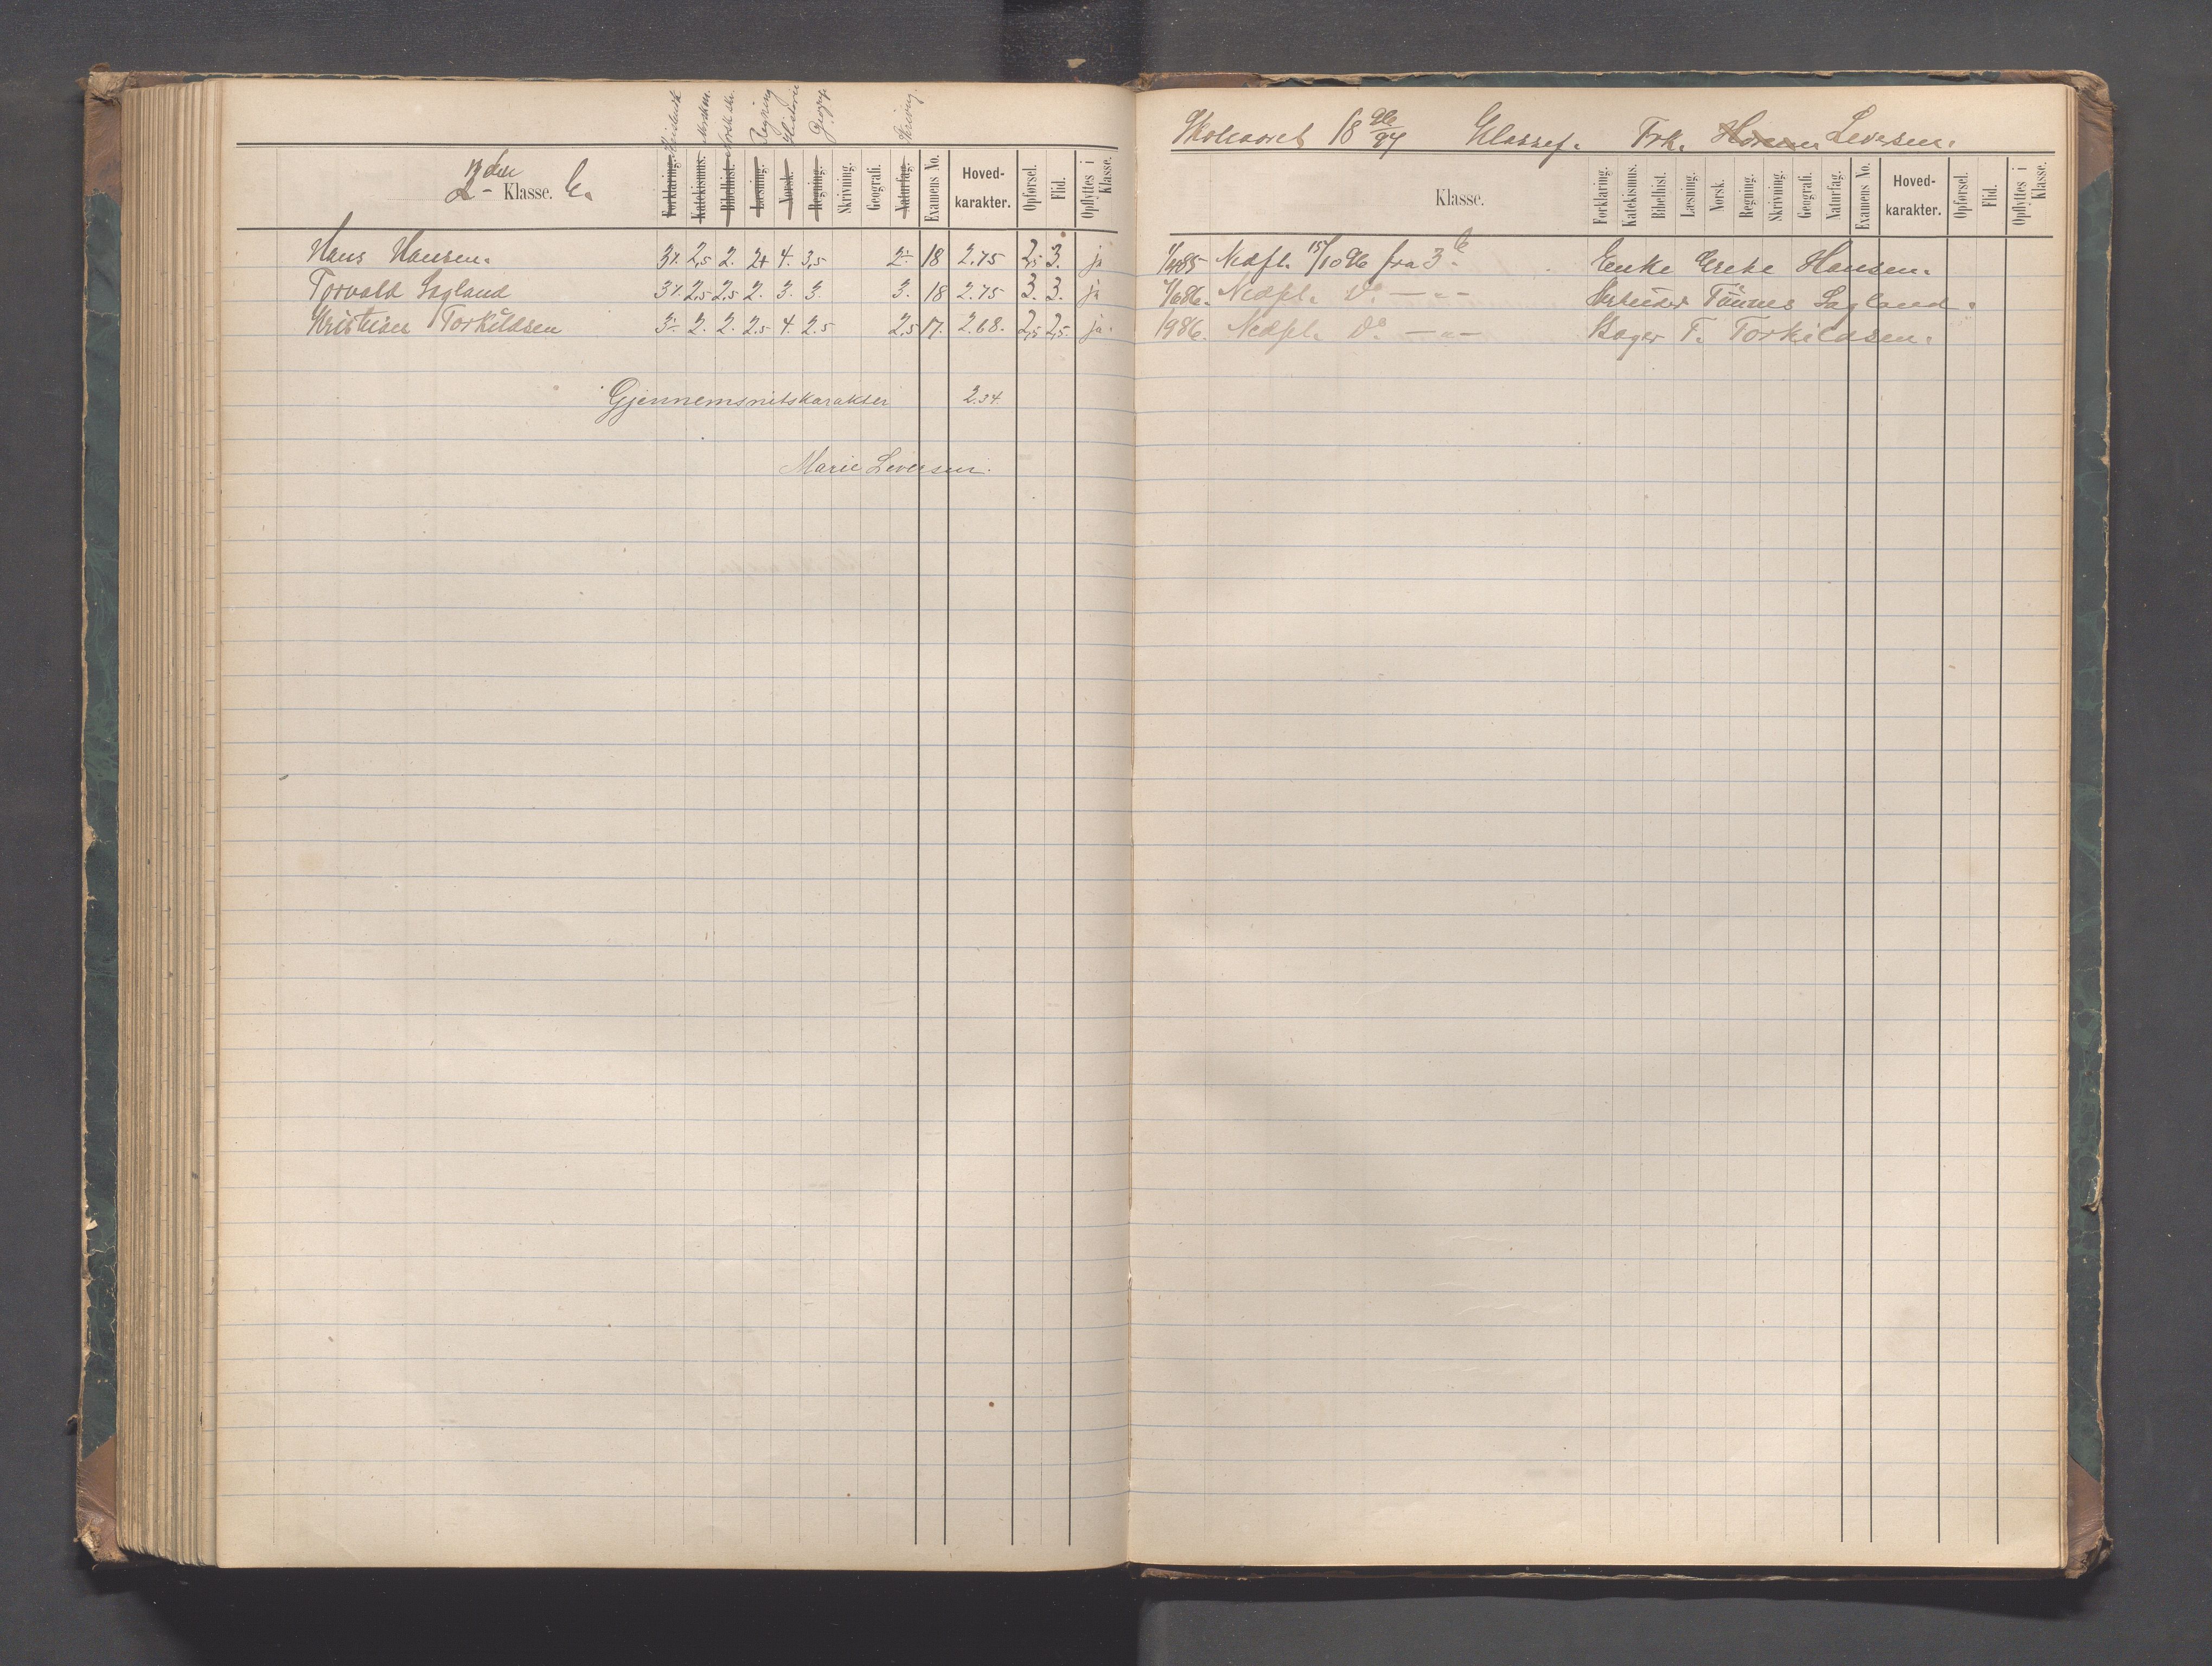 Kristendsk. Norsk m. Norsk skr. Regning Historie Geogrf. Skrivng.
2den Klasse. C.
Forklaring. Katekismus. Bibelhist. Læsning. Norsk. Regning. Skrivning. Geografi. Naturfag. Examens No. Hoved-karakter. Opførsel. Flid. Opflyttes i Klasse.
Hans Hansen. 3÷. 2,5 2. 2+ 4. 3,5 2÷ 18 2.75 2,5 3. ja
Torvald Sagland 3÷. 2,5 2,5 2. 3. 3. 3. 18 2.75 3. 3. ja
Kristian Torkildsen 3÷. 2. 2. 2,5 4. 2.5 2,5 17. 2.68. 2,5 2,5. ja.
Gjennemsnitskarakter 2.34.
Marie Leversen.
Skoleaaret 18 96/97 Classef. Frk. Leversen.
Klasse.
Forklaring. Katekismus. Bibelhist. Læsning. Norsk. Regning. Skrivning. Geografi. Naturfag. Examens No. Hoved-karakter. Opførsel. Flid. Opflyttes i Klasse.
1/4 85 Nedfl. 15/10 96 fra 3 c. Enke Grete Hansen.
7/6 86. Nedfl. Do. —„— Arbeider Tønnes Sagland.
1986. Nedfl. Do. —„— Bager T. Torkildsen.